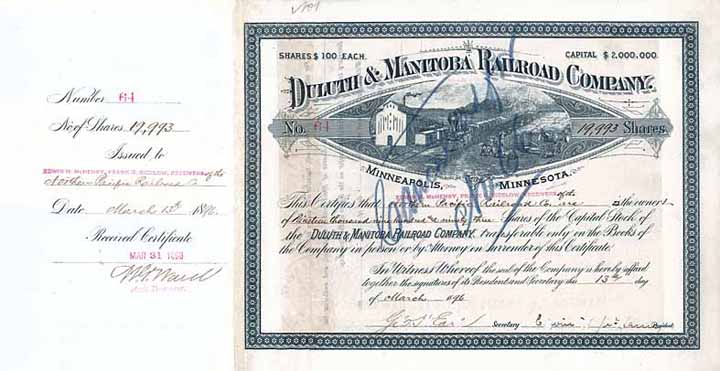 Number 64
No. of Shares 19,993
Issued to
EDWIN H. McHENRY, FRANK G. BIGELOW, RECEIVERS of the
Northern Pacific Railroad Co
Date March 13th 1896
Received Certificate
MAR 31
SHARES $100 EACH. CAPITAL $2,000,000.
DULUTH & MANITOBA RAILROAD COMPANY.
No. 64 19,993 Shares
MINNEAPOLIS, MINNESOTA.
McHENRY, RECEIVERS of the
This Certifies that Northern Pacific Railroad Co. are the owners
of Nineteen thousand nine hundred & ninety three Shares of the Capital Stock of
the DULUTH & MANITOBA RAILROAD COMPANY, transferable only on the Books of
the Company in person or by Attorney on surrender of this Certificate.
In Witness Whereof the seal of the Company is hereby affixed
together the signatures of its President and Secretary this 13th day
of March 1896
Secretary President
Cancelled